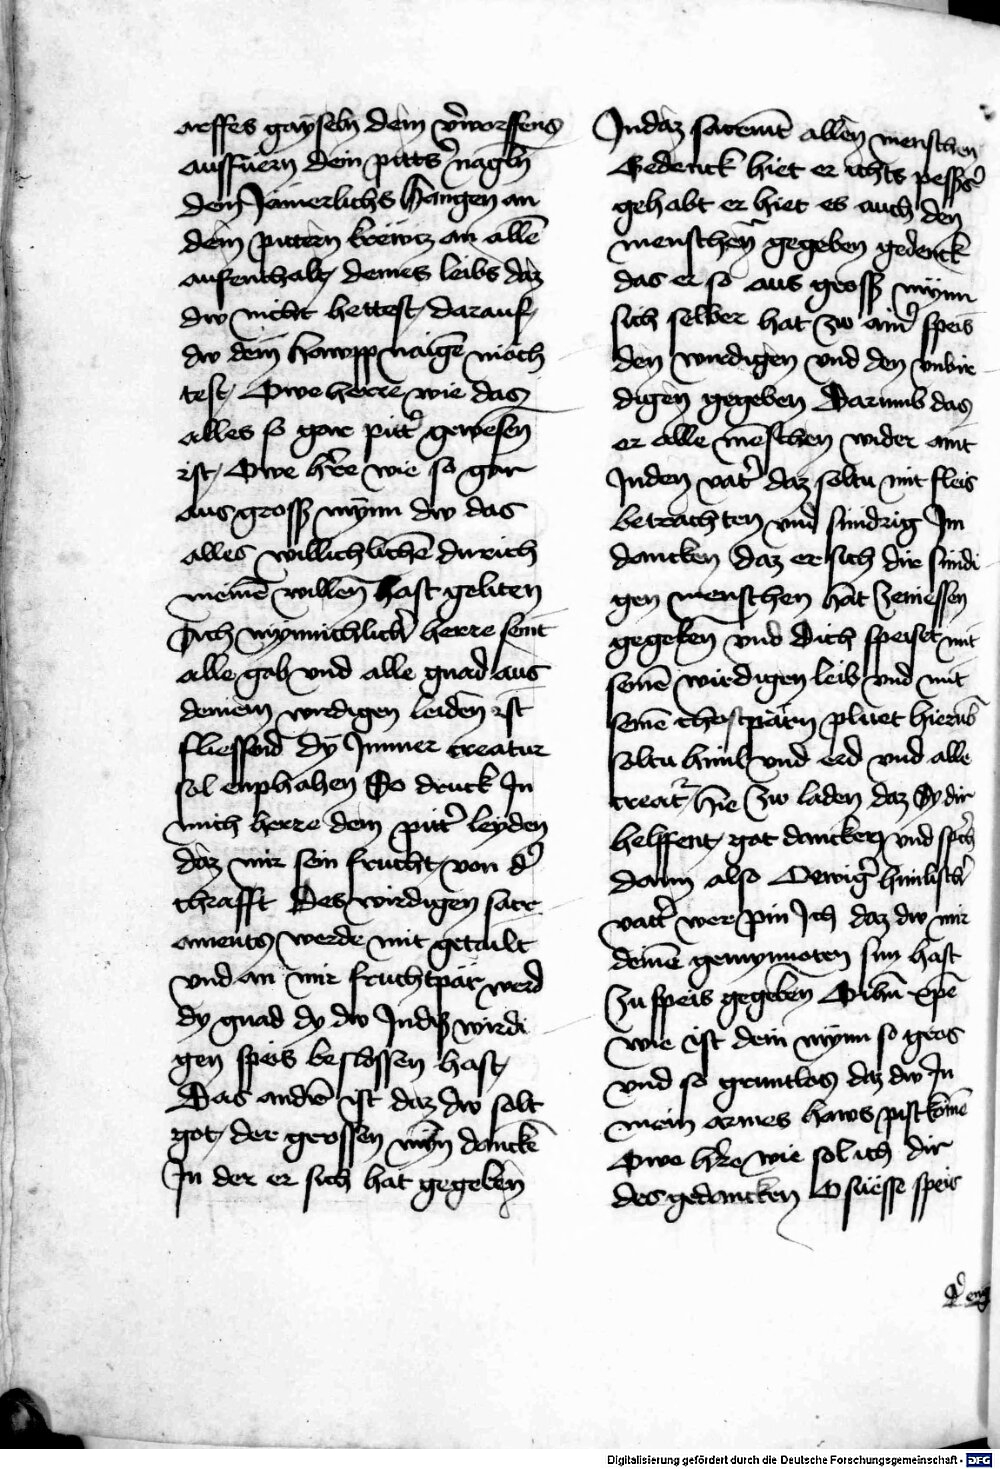 areffes gayseln dein v̉worffens
ausfüern dein pitts nagln
dein Jämerlichs Hangen an
dem pittern krewcz an allē
aufenthalt deines leibs daz
dw nicht hettest darauf
dw dein hawpp naigē möch
test Owe herre wie das
alles so gar pitt̉ gewesen
ist Owe hr̄e wie so gar
aus gross mynn dw das
alles willichlichē durich
meinē willen hast geliten
Ach mynnichlich̉ herre seint
alle gab vnd alle gnad aus
deinem wirdigen leiden ist
fliessend dy Jmmer creatur
sol enphahen So druck Jn
mich herre dein pitt̉ leyden
daz mir sein frucht von d̉
chrafft Des wirdigen sacr
aments werde mit getailt
vnd an mir fruchtpär werd
dy gnad dy dw Jndisz wirdi
gen speis beslossen hast
Das ander ist daz dw solt
got der grossen mȳn danckē
Jn der er sich hat gegeben
Jndaz sacremēt allen menschen
Gedenck hiet er ichts pessers
gehabt er hiet es auch den
menschen gegeben gedenck
das er so aus gross mynn
sich selber hat zw ain̉ speis
den wirdigen vnd den vnwir
digen gegeben Darumb das
er alle menschen wider aint
Jnden vat̉ daz soltu mit fleis
betrachten vnd sundrig Jm
dancken daz er sich dir sündi
gen menschen hat zeniessen
gegeben vnd Dich speiset mit
seinē wirdigen leib vnd mit
seinē chostpärn pluet hierūb
soltu himl vnd erd vnd alle
creat̉ hie zw laden daz Dy dir
helffent got dancken vnd spch
dann also Oewig̉ himlisch̉
vatt̉ wer pin Jch daz dw mir
deinē gemynnoten sun hast
zu speis gegeben O ihū xpē
wie ist dein mynn so gros
vnd so gruntlos daz dw Jn
mein armes haws pist kömē
Owe hr̄e wie sol ich dir
des gedancken O süesse speis